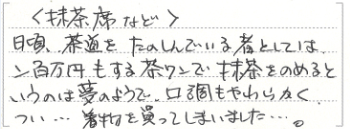 〈抹茶席など〉
日頃、茶道をたのしんでいる者としては、
ン百万円もする茶ワンで抹茶をのめると
いうのは夢のようで。口調もやわらかく
つい…着物を買ってしまいました…。